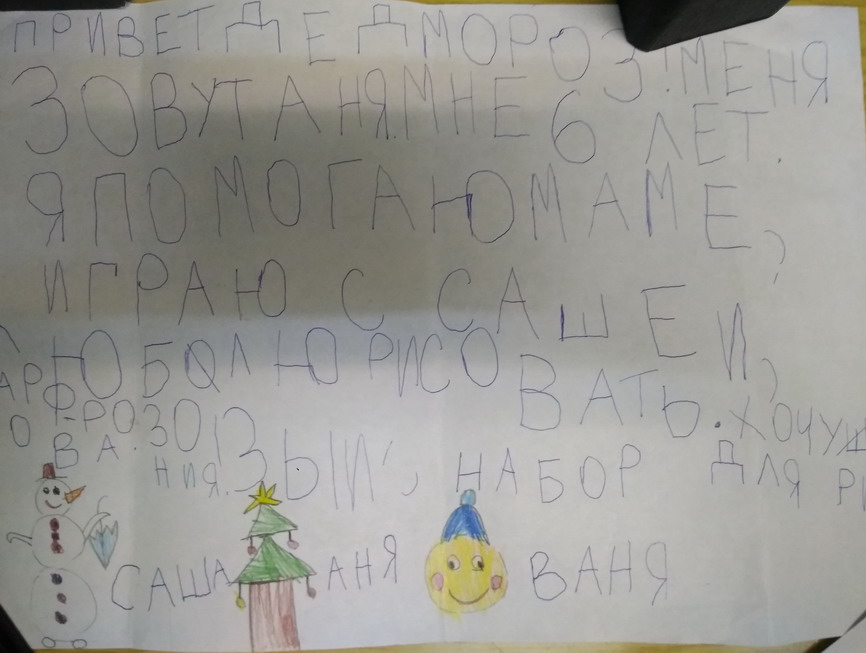 ПРИВЕТ ДЕД МОРОЗ! МЕНЯ
ЗОВУТ АНЯ. МНЕ 6 ЛЕТ.
Я ПОМОГАЮ МАМЕ,
ИГРАЮ С САШЕЙ,
ЛЮБЛЮ РИСОВАТЬ. ХОЧУ
РОЗОВЫЙ, НАБОР ДЛЯ
САША АНЯ ВАНЯ